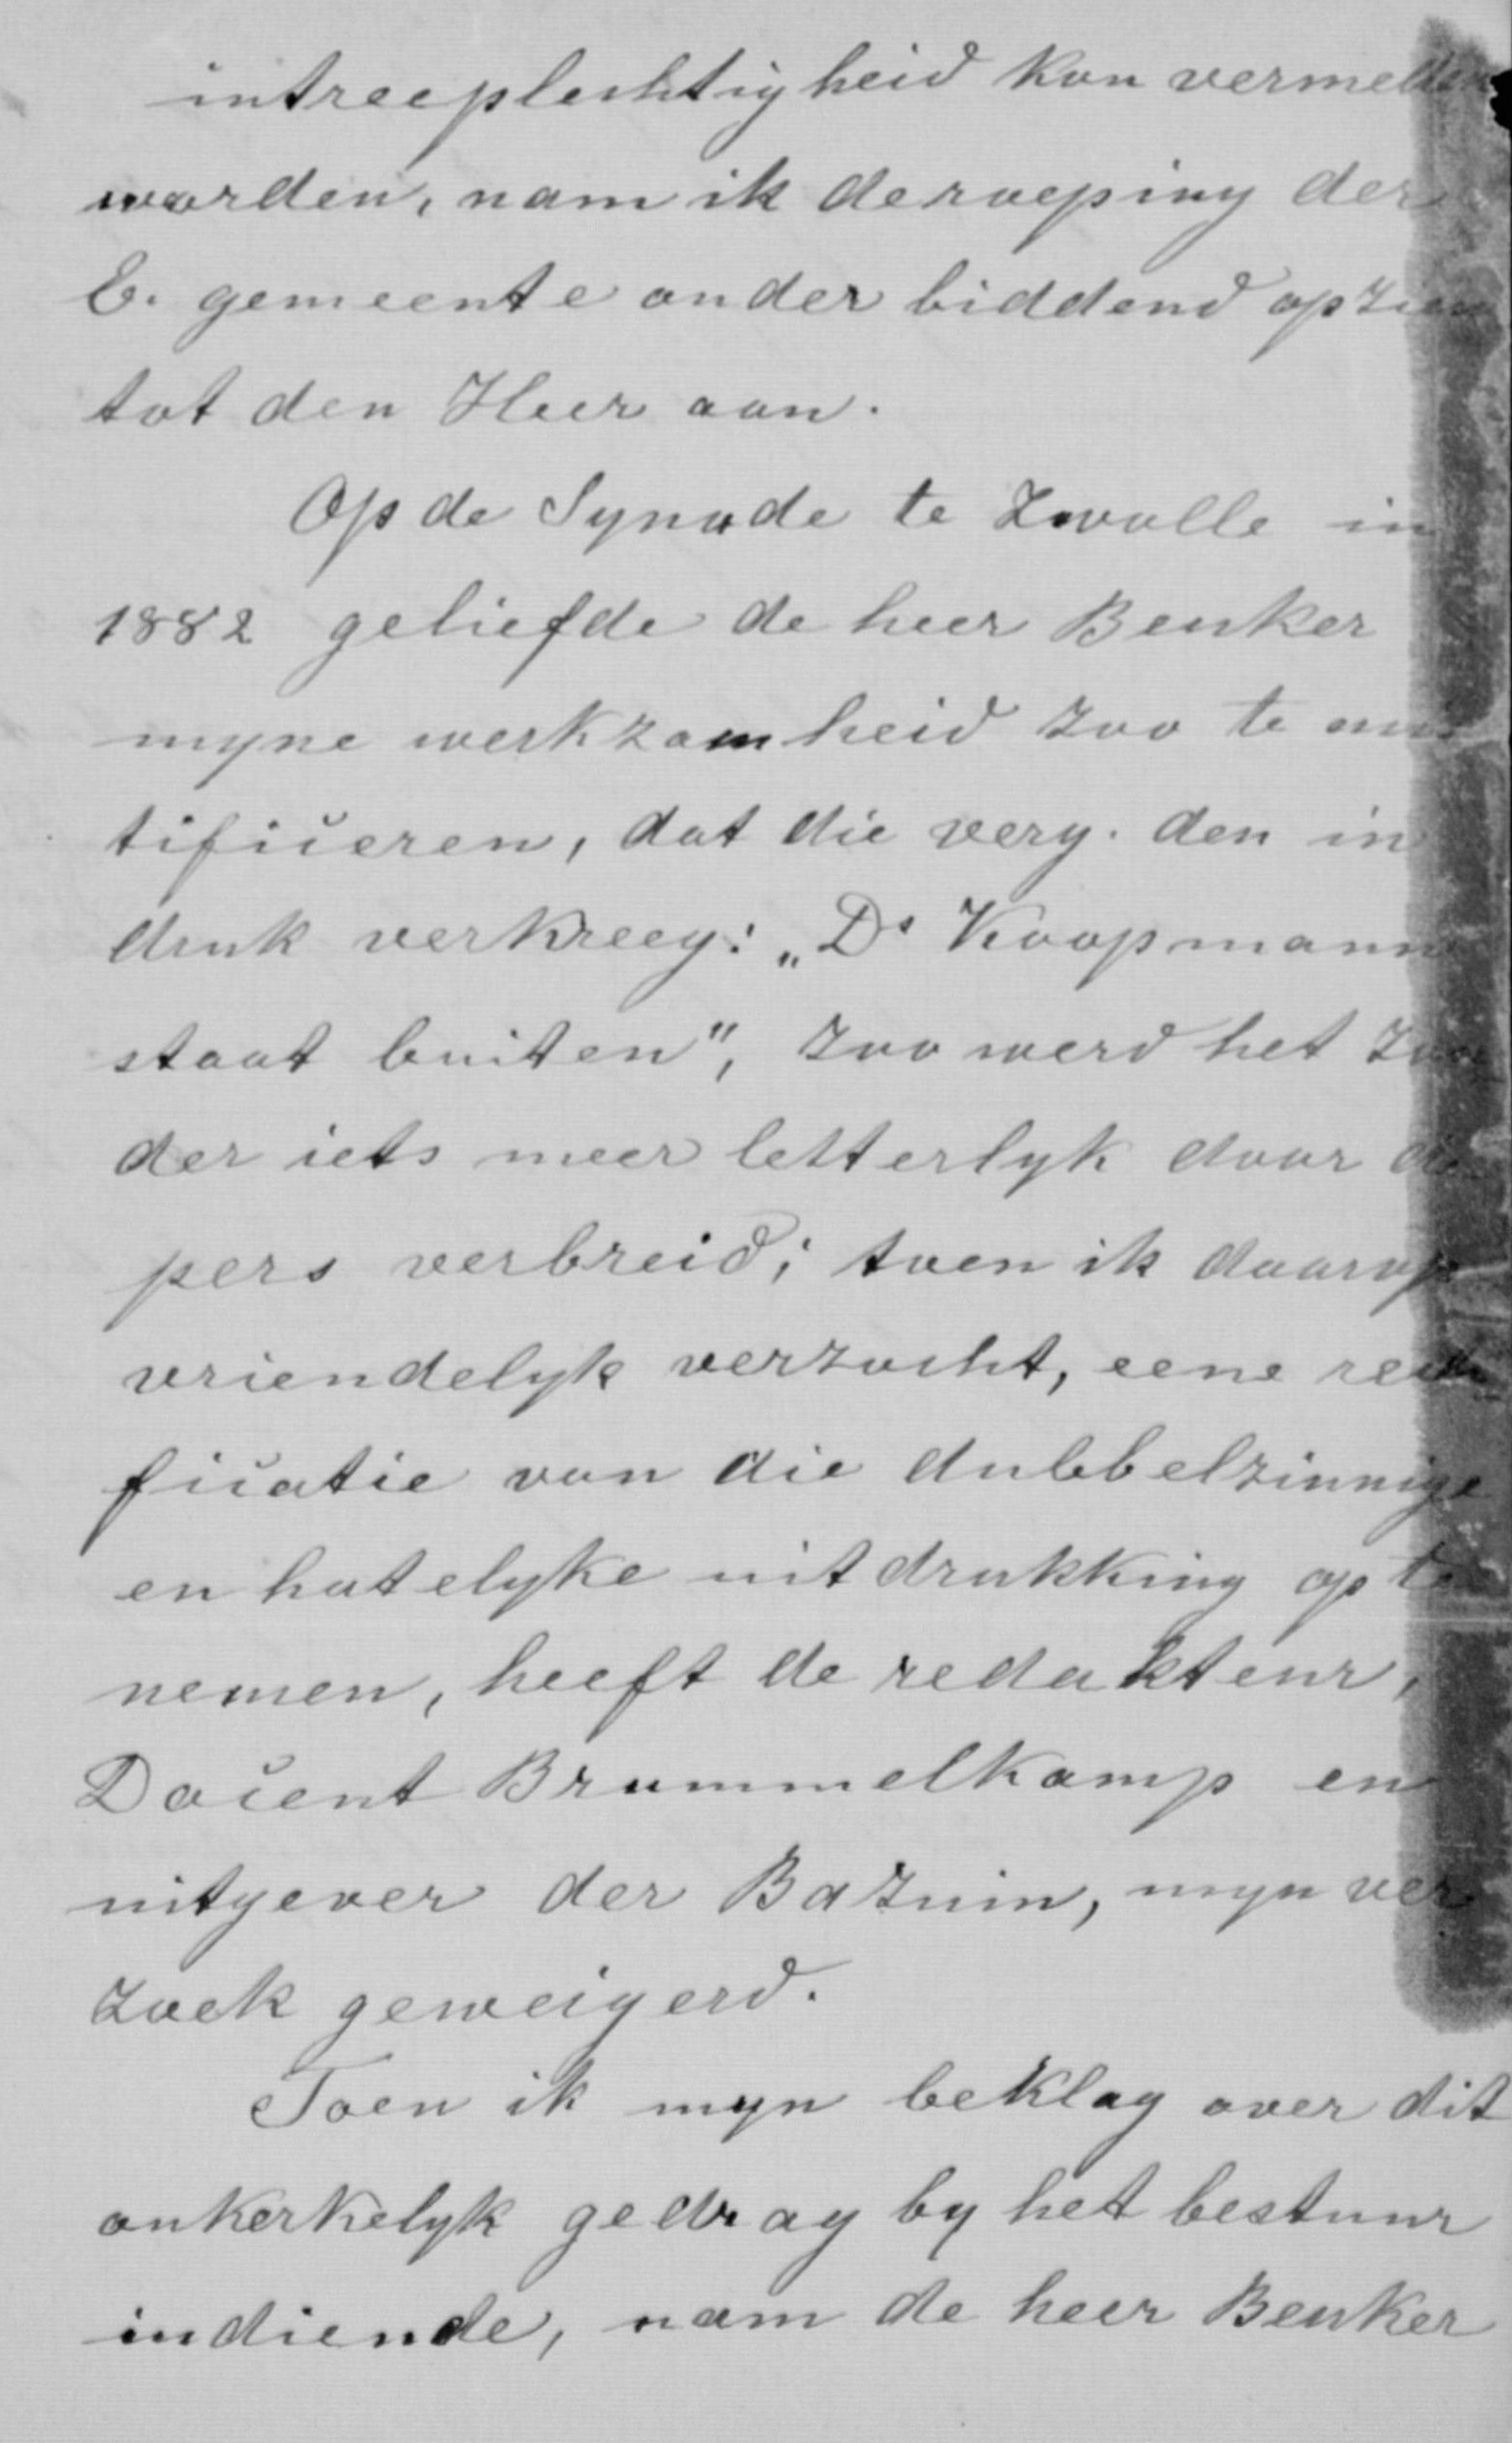 intreeplechtigheid kon vermelden
worden, nam ik de roeping der
E. gemeente onder biddend opzien
tot den Heer aan.
Op de Synode te Zwolle in
1882 geliefde de heer Beuker
myne werkzaamheid zoo te
tificeren, dat die verg. den in
druk verkreeg: „Ds Koopmann
staat buiten", zoo werd het zon
der iets meer letterlyk door de
pers verbreid; toen ik daarop
vriendelyk verzocht, eene recti
ficatie van die dubbelzinnige
en hatelyke uitdrukking op te
nemen, heeft de redakteur,
Docent Brummelkamp en
uitgever der Bazuin, myn ver
zoek geweigerd.
Toen ik myn beklag over dit
onkerkelyk gedrag by het bestuur
indiende, nam de heer Beuker